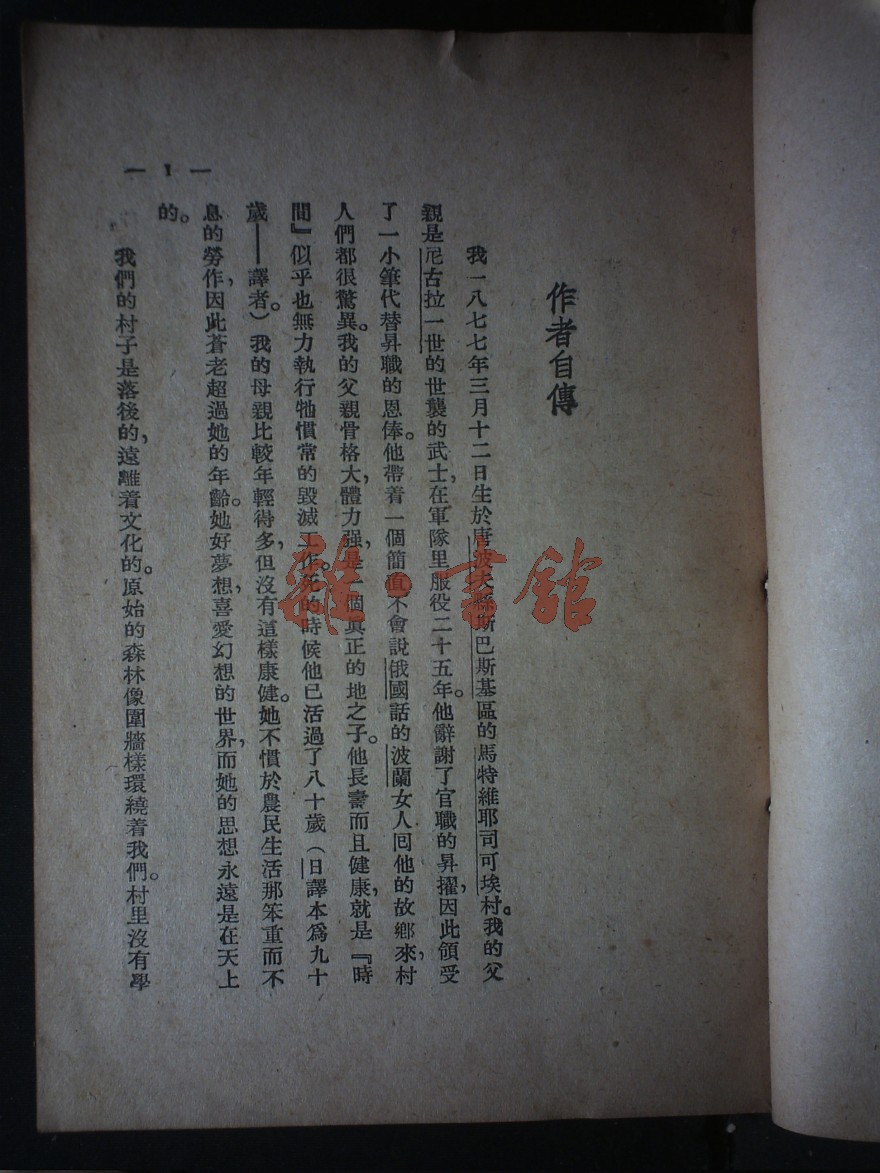 作者自傳
我一八七七年三月十二日生於唐波夫縣斯巴斯基區的馬特維耶司可埃村。我的父
親是尼古拉一世的世襲的武士,在軍隊里服役二十五年。他辭謝了官職的昇擢,因此領受
了一小筆代替昇職的恩俸。他帶着一個簡直不會說俄國話的波蘭女人回他的故鄉來,村
人們都很驚異。我的父親骨格大,體力强,是一個眞正的地之子。他長壽而且健康,就是『時
間』似乎也無力執行牠慣常的毀滅工作。死的時候他已活過了八十歲(日譯本爲九十
歲——譯者。)我的母親比較年輕得多,但沒有這樣康健。她不慣於農民生活那笨重而不
息的勞作,因此蒼老超過她的年齡。她好夢想,喜愛幻想的世界,而她的思想永遠是在天上
的。
我們的村子是落後的,遠離着文化的。原始的森林像圍牆樣環繞着我們。村里沒有學
— 1 —
雜·書館